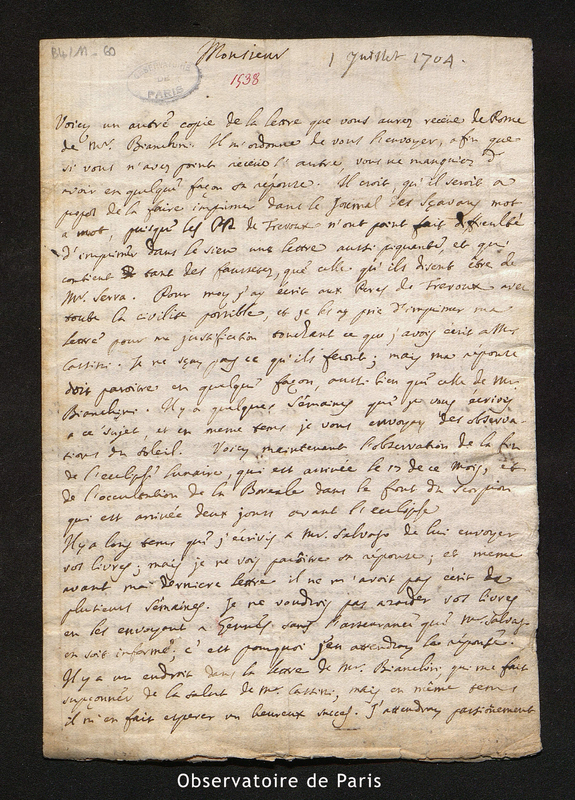 B4/11-60
Monsieur 1 Juillet 1704.
OBSERVATOIRE DE PARIS
1538
Voicy un autre copie de la lettre que vous aurez receüe de Rome
de Mr. Bianchini. Il m'ordonne de vous l'envoyer, afin que
si vous n'avez point receüe l'autre, vous ne manquiez d'
avoir en quelque façon sa réponse. Il croit, qu'il seroit a
propos de la faire imprimer dans le Journal des Sçavans mot
a mot, puisque les PP. de Trevoux n'ont point fait difficulté
d'imprimer dans le sien une lettre aussi piquante, et qui
contient tant des faussetez, que celle qu'ils disent être de
Mr. Serra. Pour moy j'ay écrit aux Peres de Trevoux avec
toute la civilité possible, et je les ay prié d'imprimer ma
lettre pour ma justification touchant ce que j'avois écrit a Mr.
Cassini. Je ne sçay pas ce qu'ils feront; mais ma réponse
doit paroître en quelque façon, aussi bien que celle de Mr.
Bianchini. Il y a quelques semaines que je vous écrivis
a ce sujet, et en même tems je vous envoyay des observa-
tions du Soleil. Voicy maintenant l'observation de la fin
de l'eclipse lunaire, qui est arrivée le 17 de ce mois, et
de l'occultation de la Boreale dans le front du Scorpion
qui est arrivée deux jours avant l'eclipse
Il y a long tems que j'écrivis a Mr. Salvago de lui envoyer
vos livres; mais je ne vois paroître sa réponse; et même
avant ma derniere lettre il ne m'avoit pas écrit de
plusieurs semaines. Je ne voudrois pas vos livres
en les envoyant a Gennes sans l'asseurance que Mr. Salvago
en soit informé; c'est pourquoi j'en attendray la réponse.
Il y a un endroit dans la lettre de Mr. Bianchini qui me fait
supçonner de la salut de Mr. Cassini, mais en même tems
il m'en fait esperer un heureux succez. J'attendray passionément
Observatoire de Paris